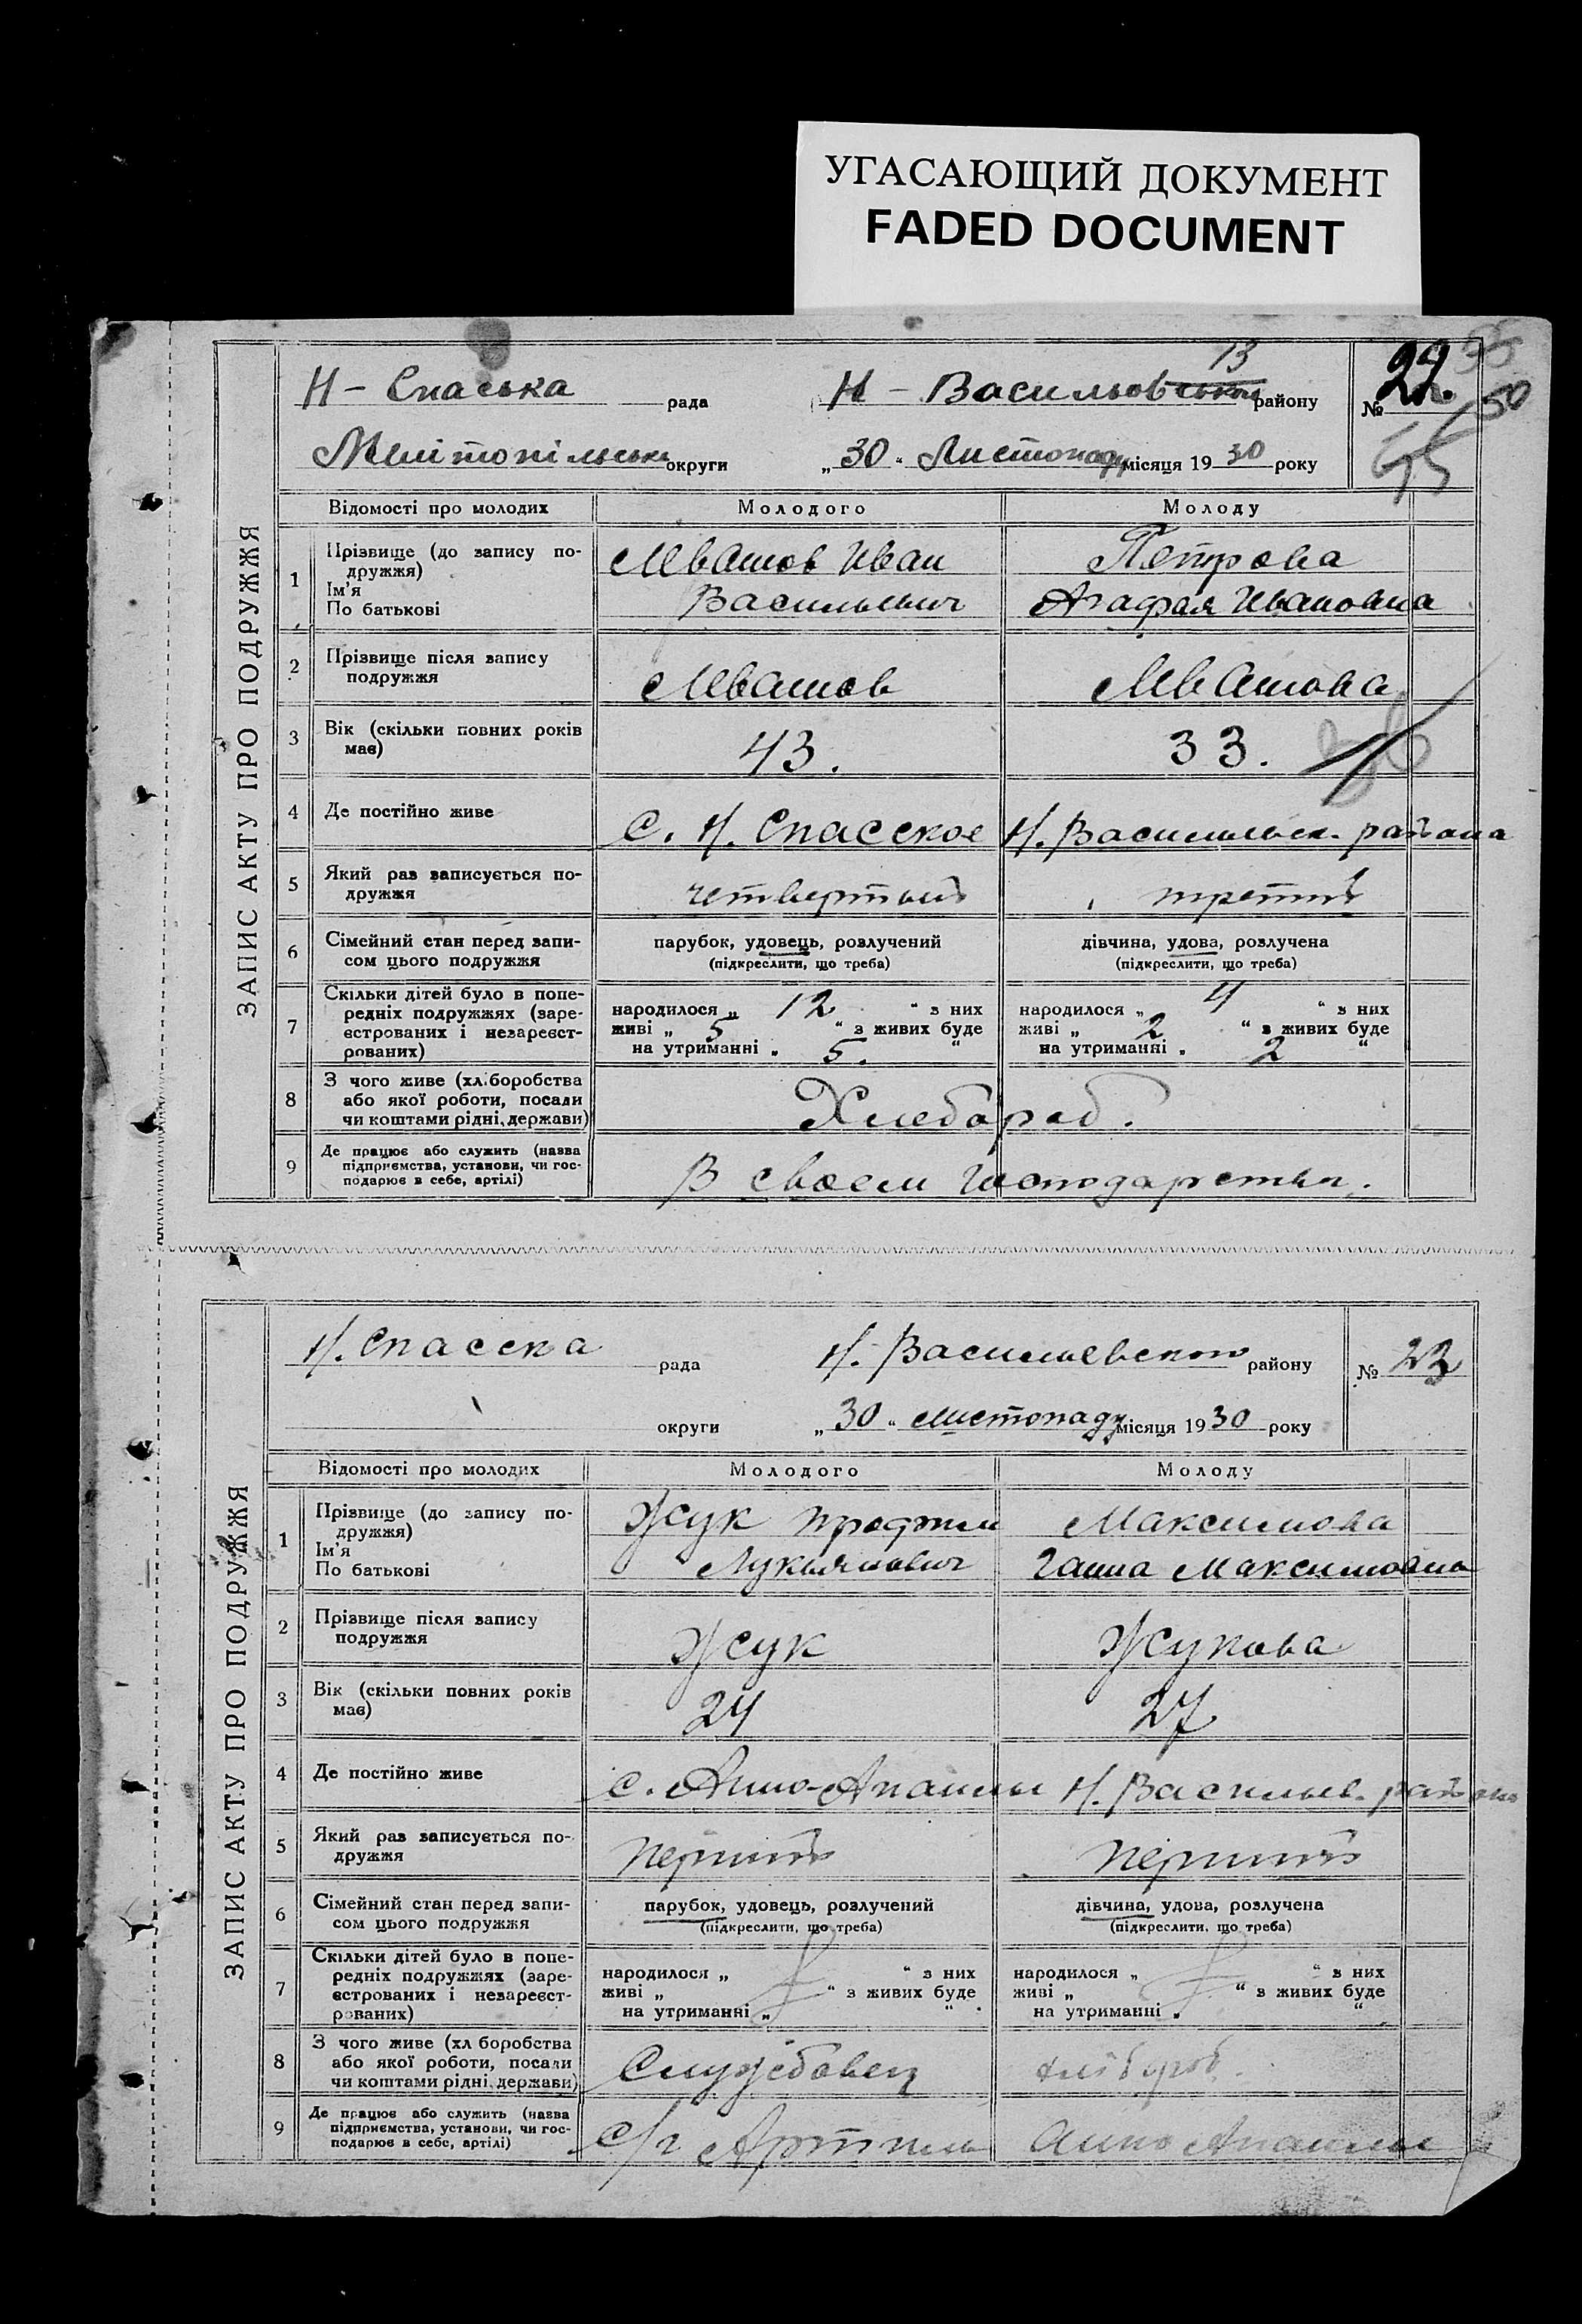 УГАСАЮЩИЙ ДОКУМЕНТ
FADED DOCUMENT
ЗАПИС АКТУ ПРО ПОДРУЖЖЯ
13
Н - Спаська рада Н - Васильовської району № 22.
55
50
Мелітопільське округи „30“ Листопаду місяця 1930 року
Відомості про молодих Молодого Молоду
1 Прізвище (до запису по-
дружжя)
Ім'я
По батькові
Ивашов Иван
Васильевич
Петрова
Агафья Ивановна
2 Прізвище після запису
подружжя
Ивашов Ивашова
3 Вік (скільки повних років
має)
43. 33.
4 Де постійно живе С. Н. Спасское Н. Васильевск. района
5 Який раз записується по-
дружжя
четвертый третий
6 Сімейний стан перед запи-
сом цього подружжя
парубок, удовець, розлучений
(підкреслити, що треба)
дівчина, удова, розлучена
(підкреслити, що треба)
7 Скільки дітей було в попе-
редніх подружжях (заре-
єстрованих і незареєст-
рованих)
народилося „ 12 “ з них
живі „ 5 “ з живих буде
на утриманні „ 5. “
народилося „ 4 “ з них
живі „ 2 “ з живих буде
на утриманні „ 2 “
8 З чого живе (хл.боробства
або якої роботи, посади
чи коштами рідні, держави)
Хлебороб.
9 Де працює або служить (назва
підприємства, установи, чи гос-
подарює в себе, артілі)
В своем господарстви.
ЗАПИС АКТУ ПРО ПОДРУЖЖЯ
Н. Спасска рада Н. Васильевского району № 23
округи „30“ Листопаду місяця 1930 року
Відомості про молодих Молодого Молоду
1 Прізвище (до запису по-
дружжя)
Ім'я
По батькові
Жук
Лукьянович
Максимова
Ганна Максимовна
2 Прізвище після запису
подружжя
Жук Жукова
3 Вік (скільки повних років
має)
24 27
4 Де постійно живе с. Анно-Апанлы Н. Васильев. района
5 Який раз записується по-
дружжя
перший перший
6 Сімейний стан перед запи-
сом цього подружжя
парубок, удовець, розлучений
(підкреслити, що треба)
дівчина, удова, розлучена
(підкреслити, що треба)
7 Скільки дітей було в попе-
редніх подружжях (заре-
єстрованих і незареєст-
рованих)
народилося „ “ з них
живі „ “ з живих буде
на утриманні „ “
народилося „ “ з них
живі „ “ з живих буде
на утриманні „ “
8 З чого живе (хл боробства
або якої роботи, посади
чи коштами рідні, держави)
Службовец хлібороб.
9 Де працює або служить (назва
підприємства, установи, чи гос-
подарює в себе, артілі)
С/г Артиль Анно Апанлы